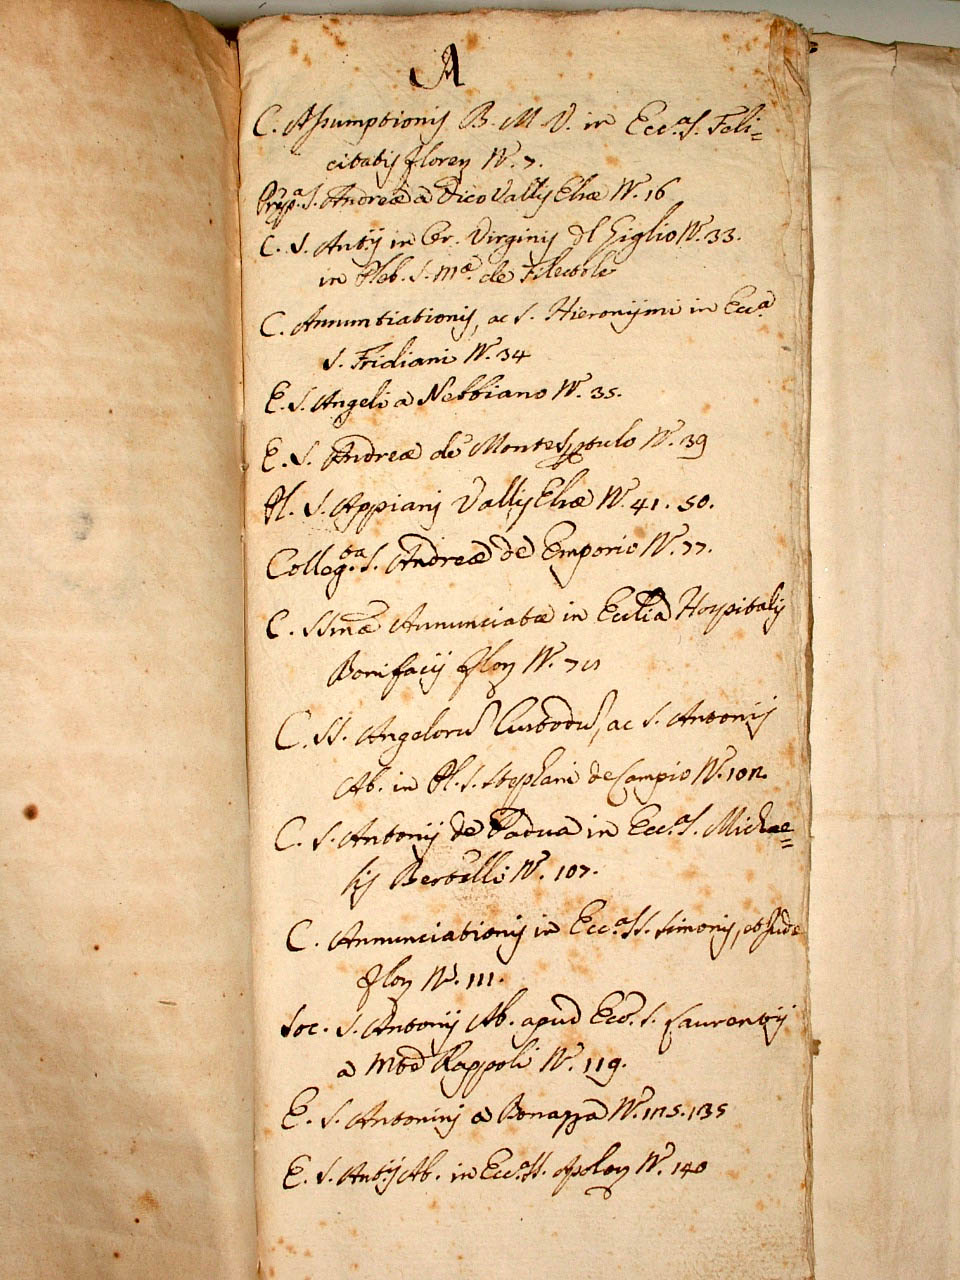 A
C. Assumptionis B. M. V. in Ecc.a S. Feli=
citatis Floren N.° 7.
Prep.a S. Andreæ a Dico Vallis Elsæ N.° 16
C. S. Ant.ij in Or. Virginis del Giglio N.° 33.
in Pleb. S. M.æ de Filettole
C. Annuntiationis, ac S. Hieronijmi in Ecc.a
S. Fridiani N.° 34
E. S. Angeli a Nebbiano N.° 35.
E. S. Andreæ de N.° 39
Pl. S. Appiani Vallis Elsæ N.° 41. 50.
Colleg.ta S. Andreæ de Emporio N.° 77.
C. SSmæ Annunciatæ in Ecclia Hospitalis
Bonifacij Flor N.°
C. SS. Angeloru Custodu, ac S. Antonij
Ab. in Pl. S. Stephani de Campio N.° 102.
C. S. Antonij de Padua in Ecc.a S. Michae=
lis Bertelli N.° 107.
C. Annunciationis in Ecc.a SS. Simonis, et Judæ
Flor N.° 111.
Soc. S. Antonij Ab. apud Ecc. S. Laurentij
a Mte Rappoli N.° 119.
E. S. Antonini a Bonazza N.° 125. 135
E. S. Ant.ij Ab. in Ecc.a SS. N.° 140